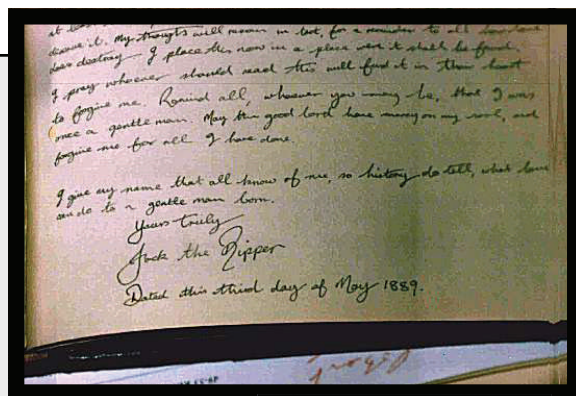 it
deserve it. My thoughts will remain in tact, for a reminder to all how love
does destroy. I place this now in a place were it shall be found.
I pray whoever should read this will find it in their heart
to forgive me. Remind all, whoever you may be, that I was
once a gentle man. May the good lord have mercy on my soul, and
forgive me for all I have done.
I give my name that all know of me, so history do tell, what love
can do to a gentle man born.
Yours truly
Jack the Ripper
Dated this third day of May 1889.